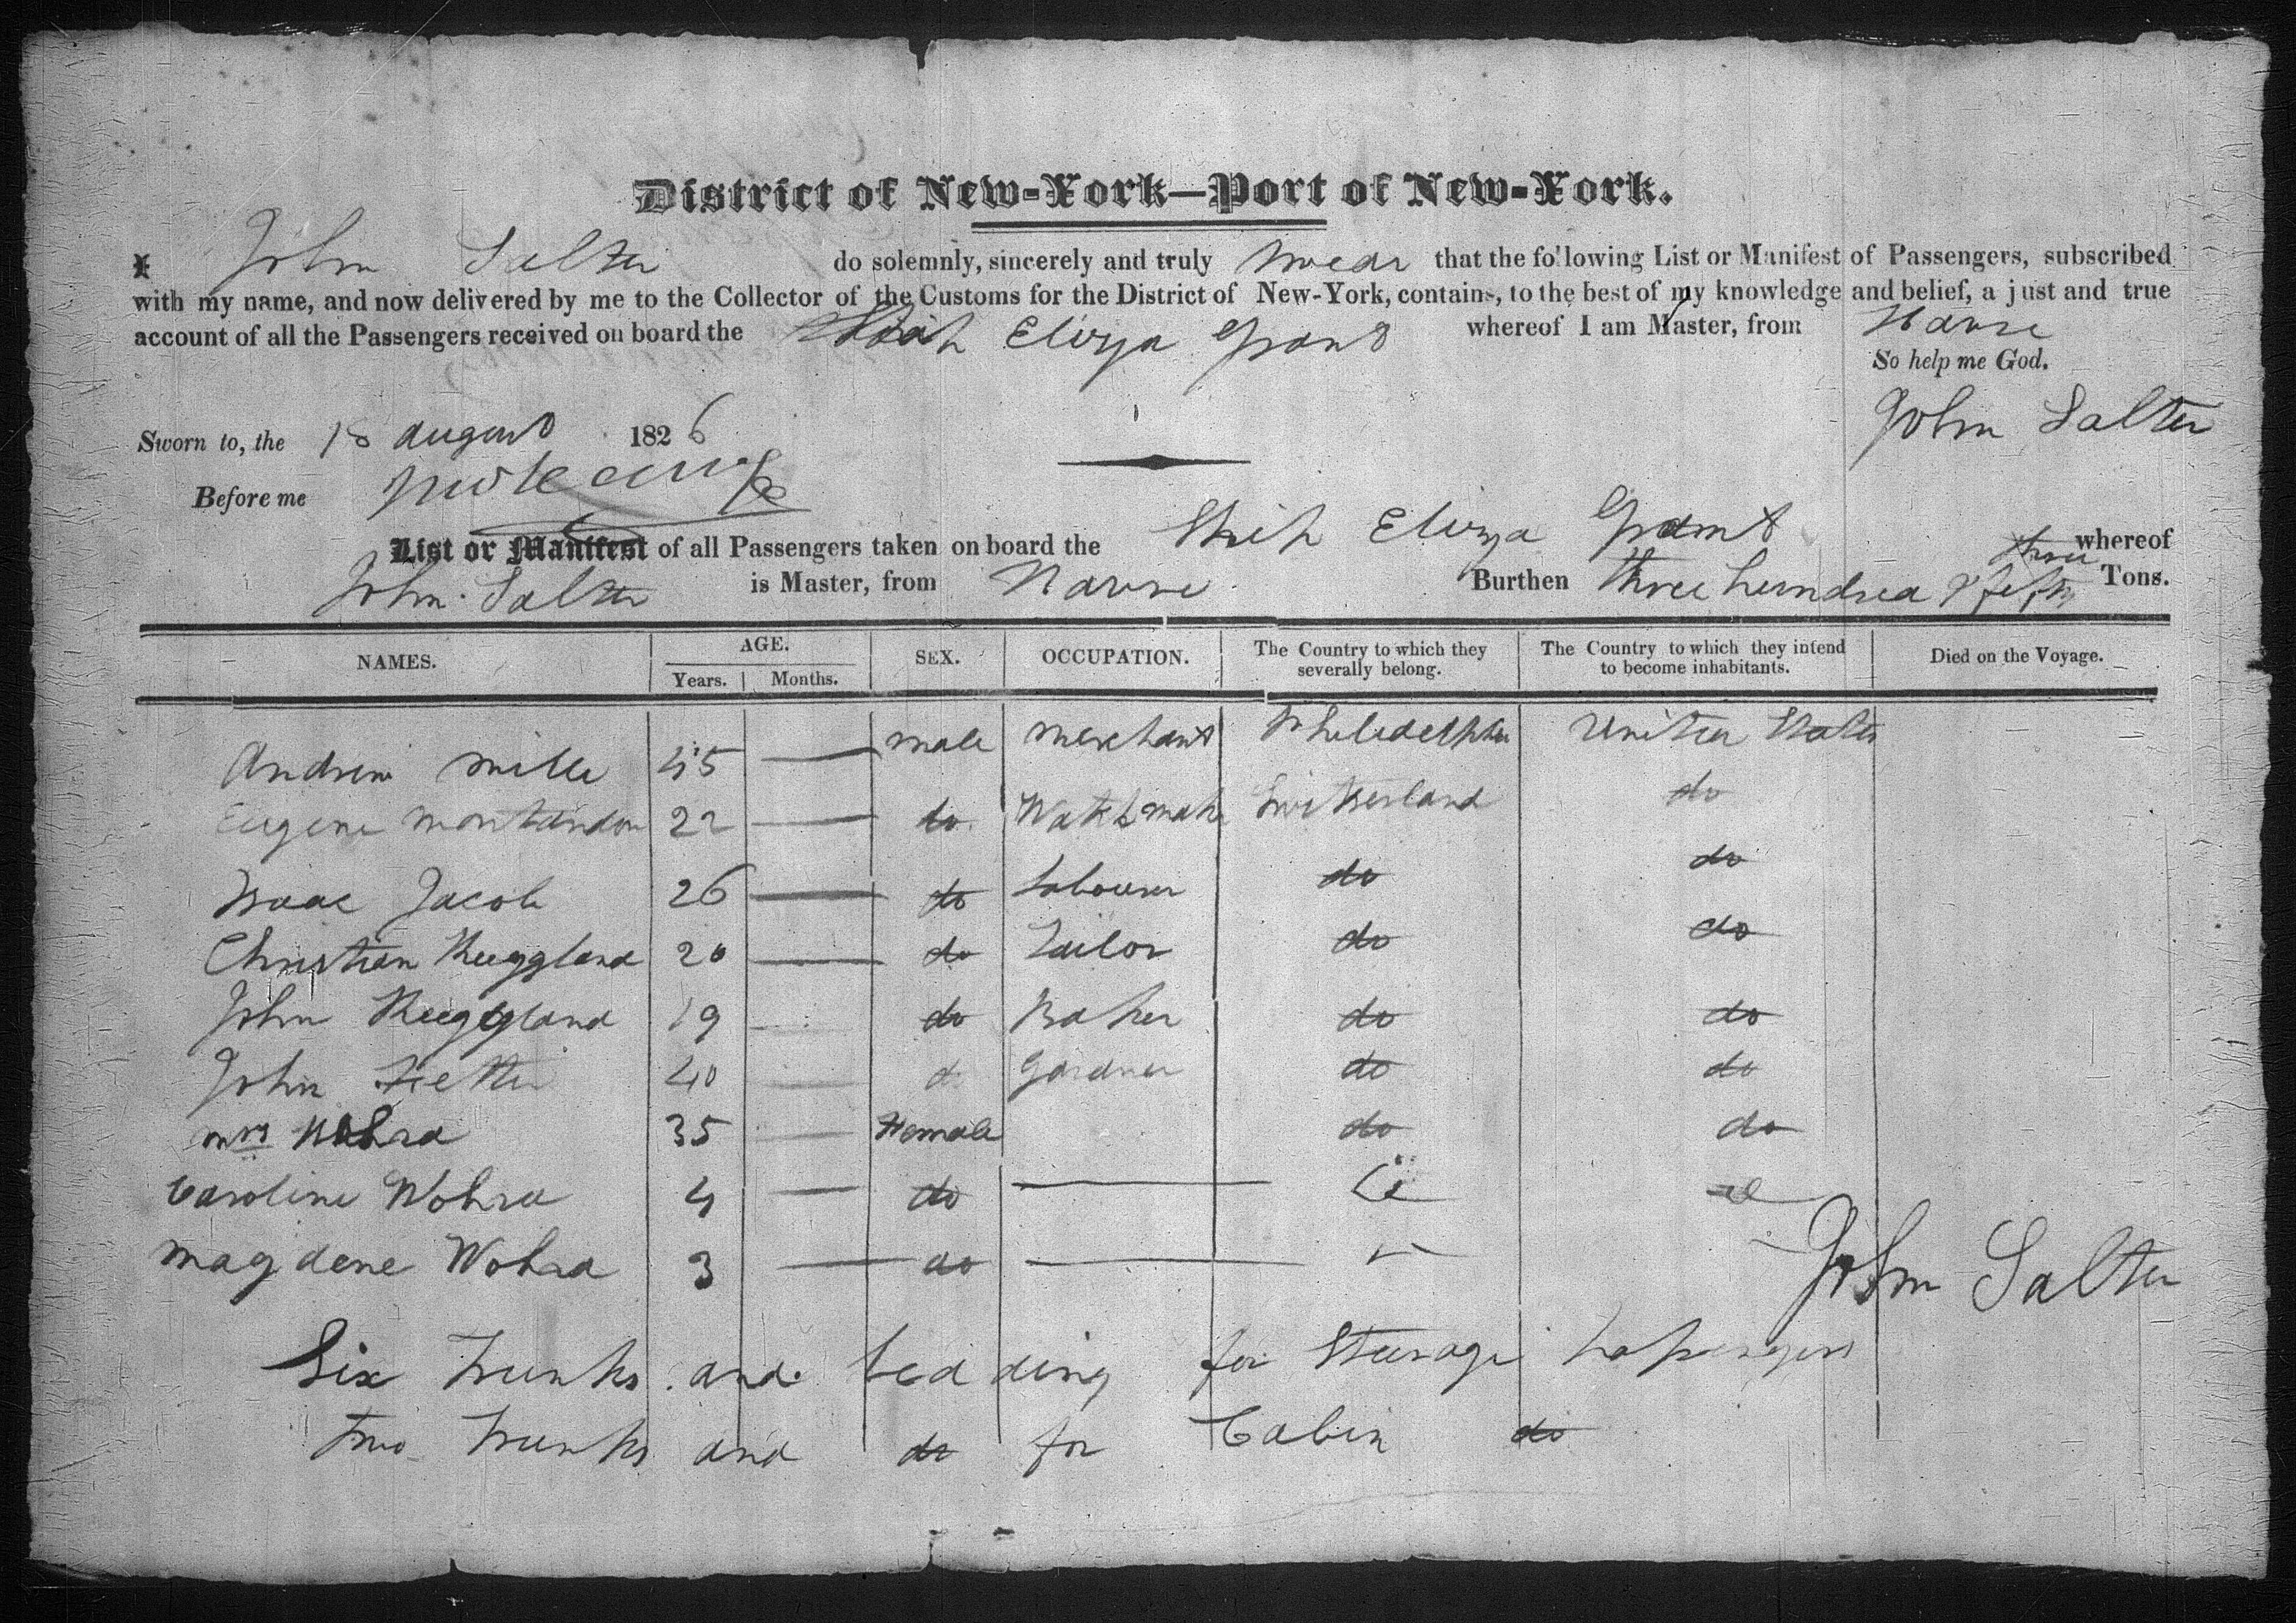 District of New-York—Port of New-York.
I John Salter do solemnly, sincerely and truly swear that the following List or Manifest of Passengers, subscribed
with my name, and now delivered by me to the Collector of the Customs for the District of New-York, contains, to the best of my knowledge and belief, a just and true
account of all the Passengers received on board the Ship Eliza Grant whereof I am Master, from Havre
So help me God.
John Salter
Sworn to, the 18 august 1826
Before me
List or Manifest of all Passengers taken on board the Ship Eliza Grant whereof
John Salter is Master, from Havre Burthen three hundred & fifty three Tons.
NAMES. AGE. SEX. OCCUPATION. The Country to which they severally belong. The Country to which they intend to become inhabitants. Died on the Voyage.
Years. Months.
Andrew Mille 45 — male merchant Philedelphia United States
Eugene Montandon 22 — do Watchmaker Switzerland do
Isaac Jacob 26 — do Labourer do do
Christian Rueggland 20 — do Tailor do do
John Rueggland 19 — do Baker do do
John 40 — d Gardner do do
mrs Wohra 35 — Female do do
Caroline Wohra 4 — do —
Magdene Wohra 3 — do —
John Salter
Six Trunks and bedding for Steerage passengers
Two Trunks and do for Cabin do